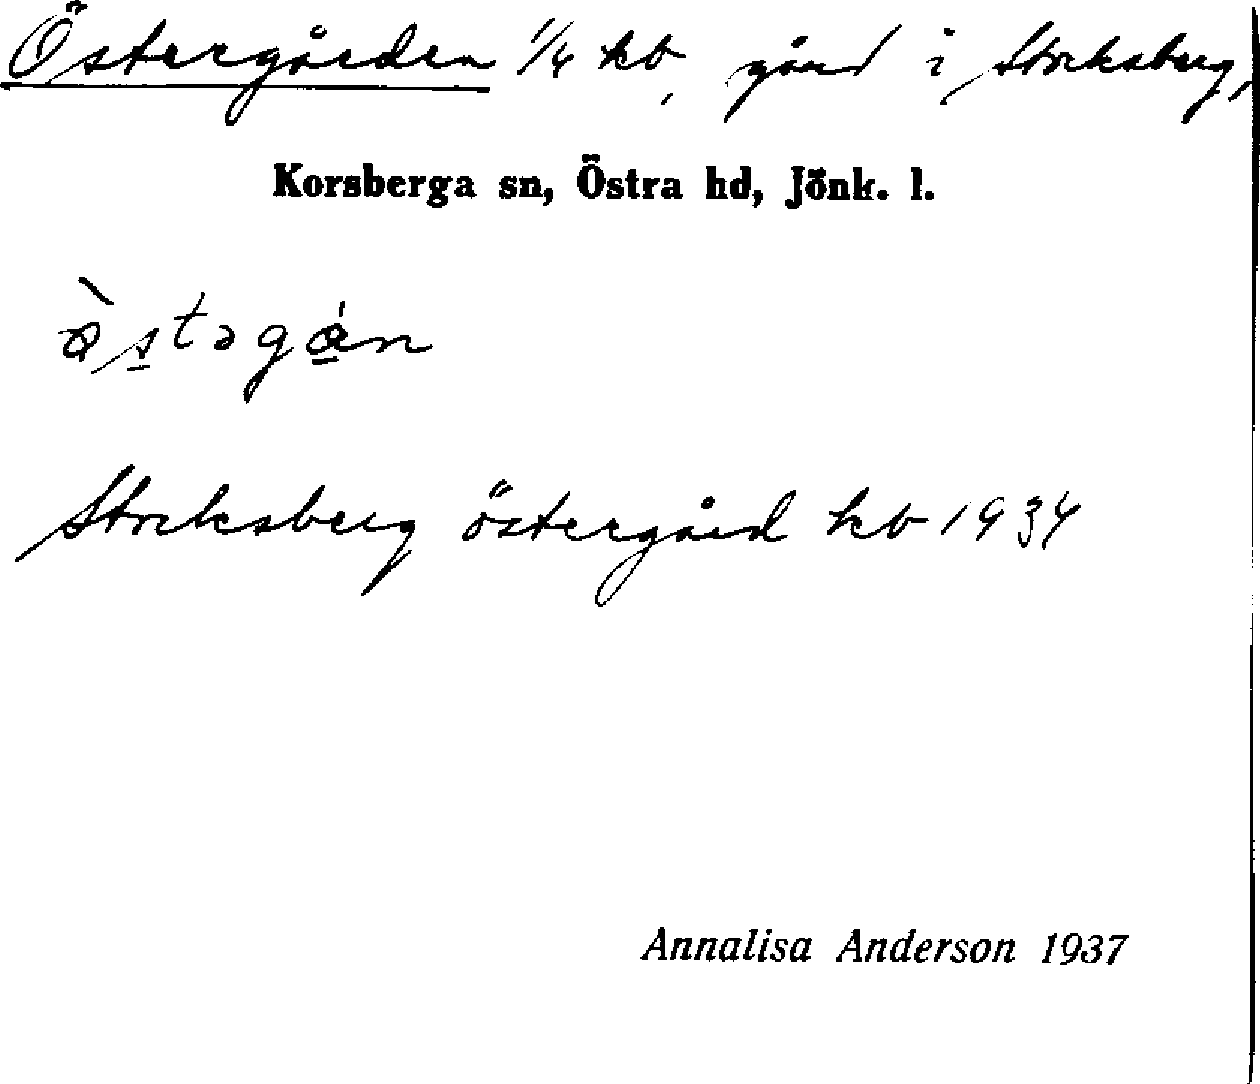 Östergården 1/4 kb, gård i Storksberg,
Korsberga sn, Östra hd, Jönk. l.
Storksberg östergård kb 1934
Annalisa Anderson 1937